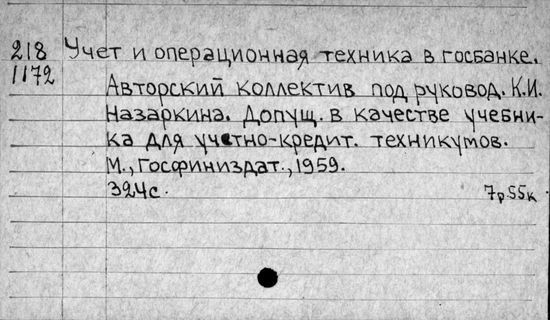 218 Учет и операционная техника в госбанке.
1172 Авторский коллектив под руковод. К.И.
Назаркина. Допущ. в качестве учебни-
ка для учетно-кредит. техникумов.
М., Госфиниздат., 1959.
324с. 7р.55к